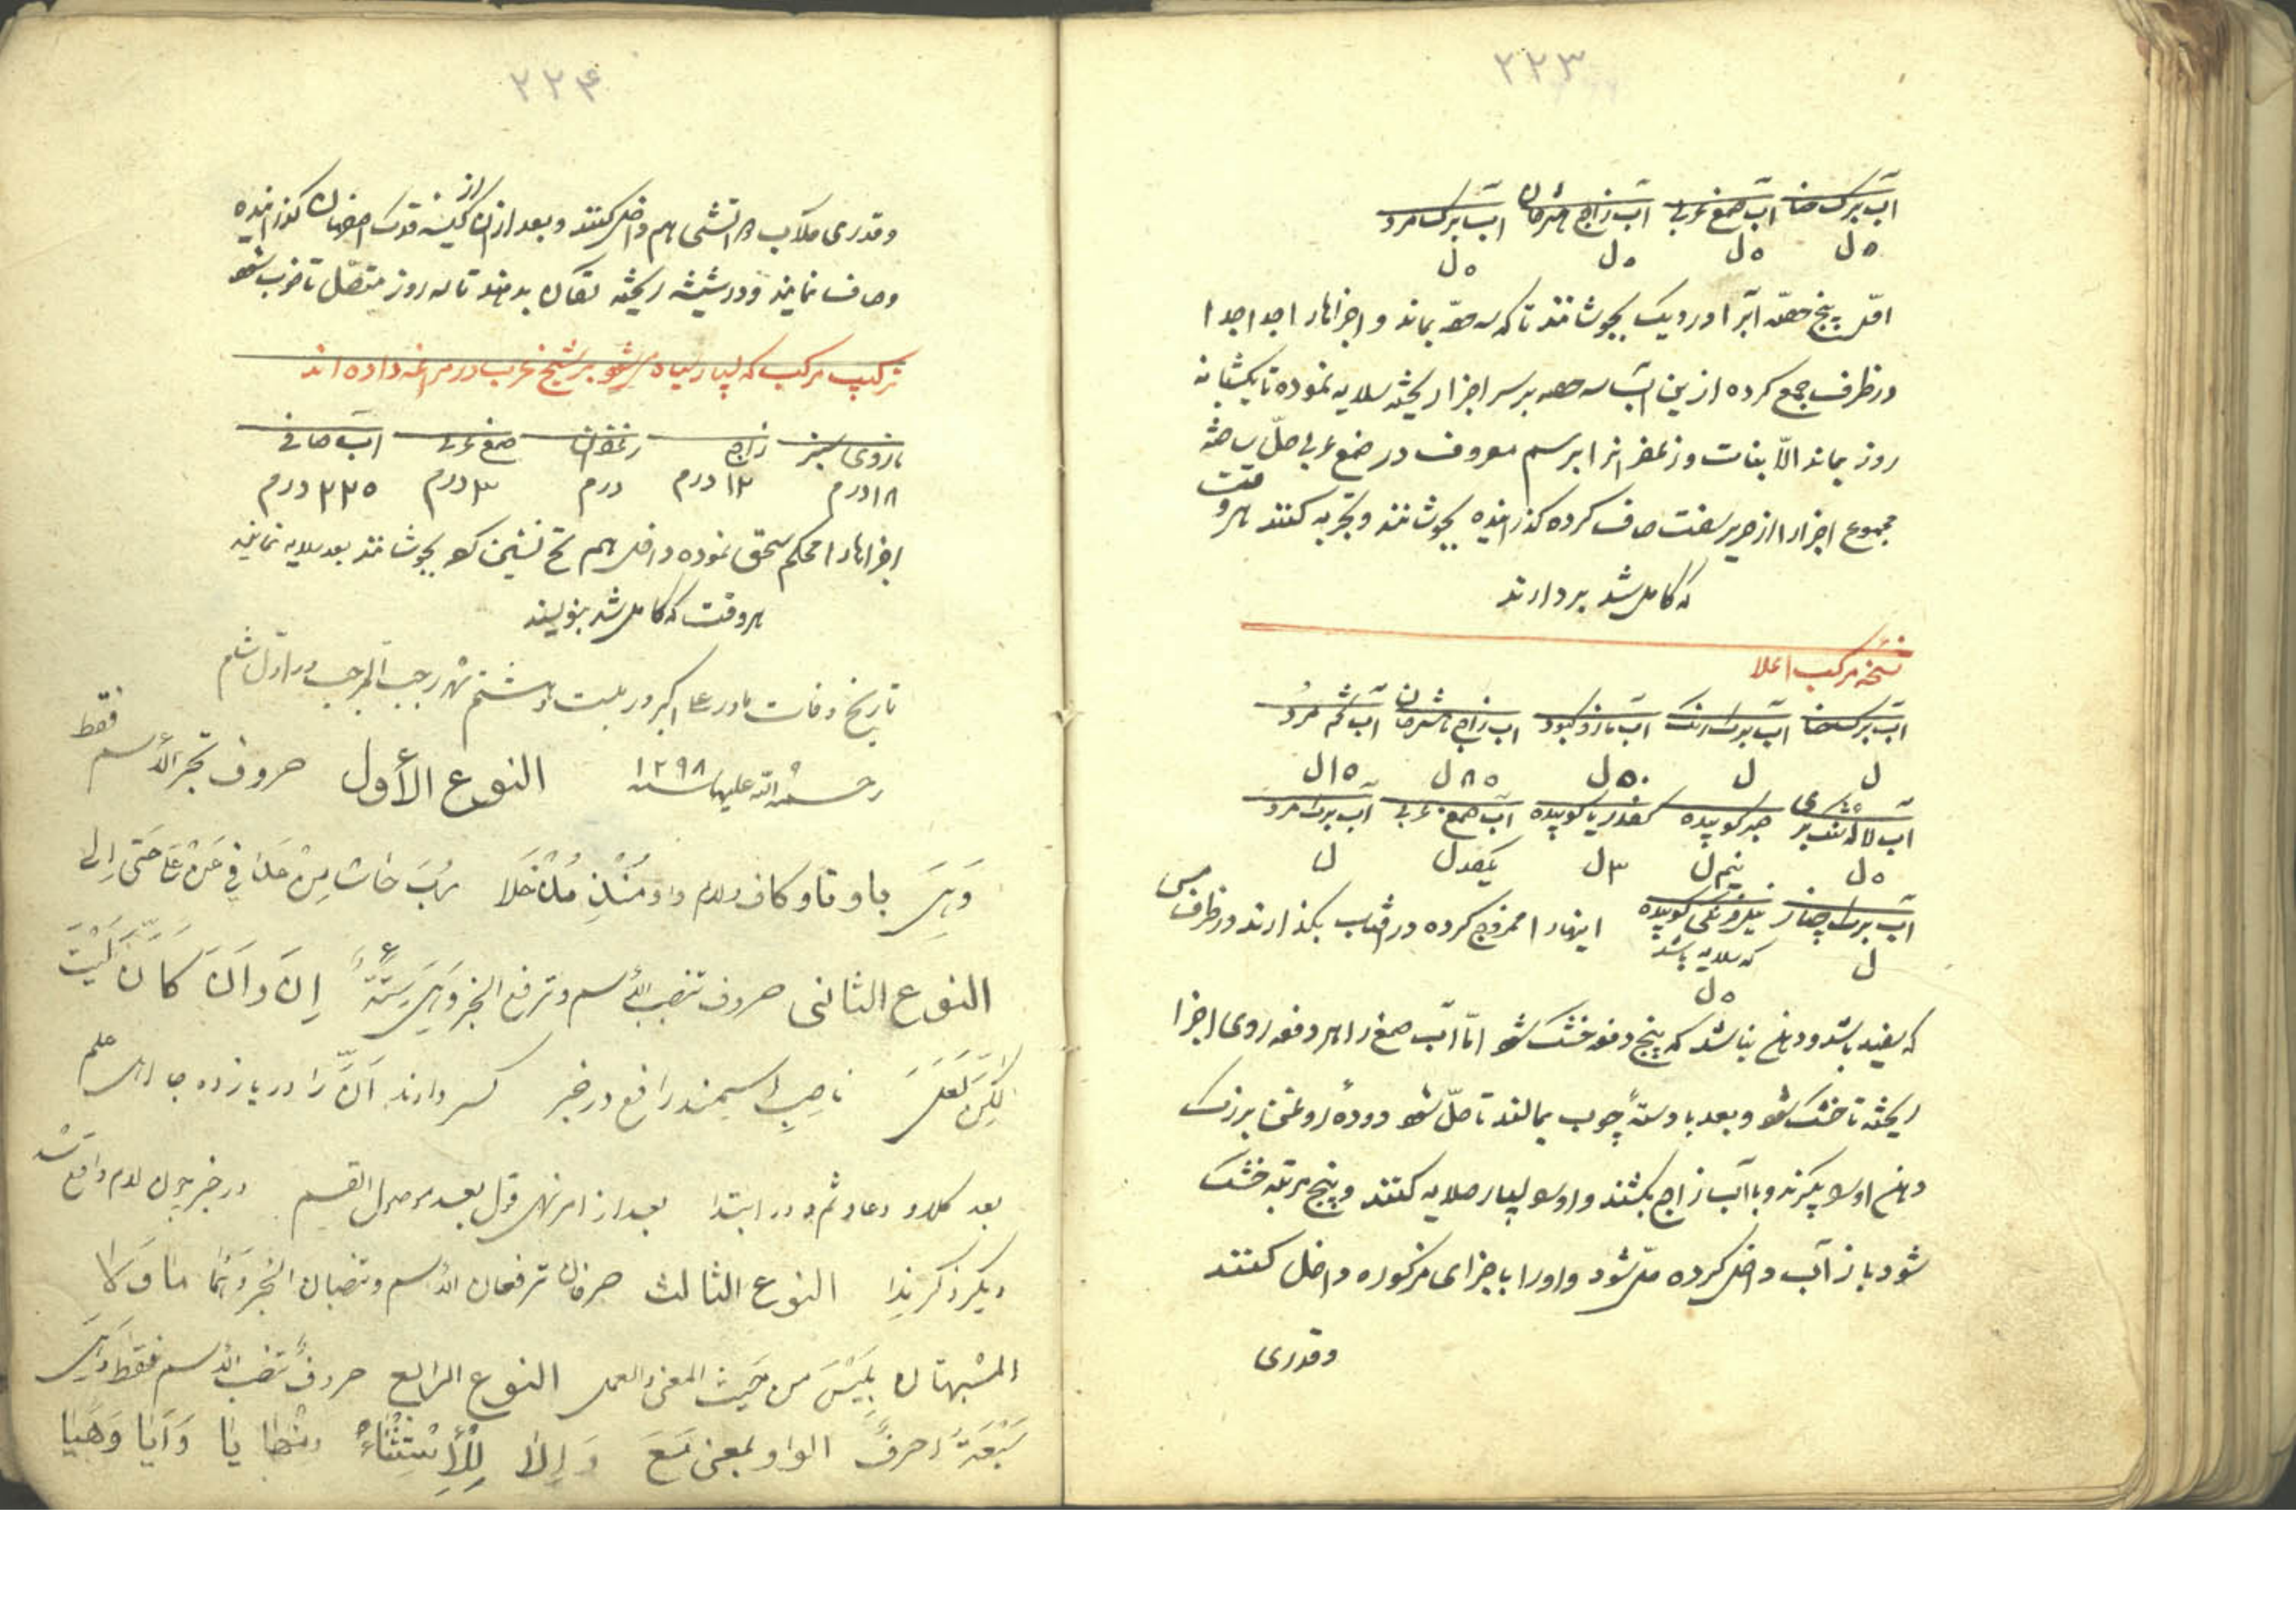 ۲۲۳
آب برگ حنا آب صمغ عربی آب زاج شتر آب برگ مرد
۵ل ۵ل ۵ل ۵ل
اول پنج حصه آبرا در دیک بجوشانند تا که سه حصه بماند و اجزاها را جدا جدا
در ظرف جمع کرده ازین آب سه حصه بر سر اجزا ریخته سلایه نموده تا یکشبانه
روز بماند الا نبات و زعفرانرا برسم معروف در صمغ عربی حل ساخته
مجموع اجزا را از حریر سفت صاف کرده گذرانیده بجوشانند و تجربه کنند هر وقت
که کامل شد بردارند
نسخه مرکب اعلا
آب برک حنا آب برک رنک آب مازو کبود آب زاج آب مرد
ل ل ۵۰ل ۸۵ل ۱۵ل
آب لاله صبر کوبیده کوبیده آب صمغ عربی آب برک مرد
۵ل نیم ل ۳ل یکصد ل ل
آب برک چنار نیل فرنگی کوبیده اینها را ممزوج کرده در آفتاب بگذارند در ظرف مس
ل که سلایه باشد
۵ل
که سفید باشد و دهن نباشد که پنج دفعه خشک شود اما آب صمغ را هر دفعه روی اجزا
ریخته تا خشک شود و بعد با دسته چوب بمالند تا حل شود دوده روغن بزرک
دهن او بگیرند و با آب زاج بکشند و او بسیار صلایه کنند و پنج مرتبه خشک
شود باز آب داخل کرده حل شود و او را با اجزای مذکوره داخل کنند
وقدری
۲۲۴
وقدری هم داخل کنند و بعد از آن از گذرانیده
و صاف نمایند و در شیشه ریخته تکان بدهند تا سه روز متصل تا خوب شود
ترکیب مرکب که بسیار سیاه میشود بر شیخ غرب در مراغه داده اند
مازوی سبز زاج زعفران صمغ عربی آب صافی
۱۸درم ۱۲درم درم ۳درم ۲۲۵ درم
اجزاها را محکم سحق نموده داخل هم بجوشانند بعد سلایه نمایند
هر وقت که کامل شد بنویسند
تاریخ وفات مادر علی اکبر در بیست و هشتم شهر رجب المرجب در اول شام
رحمة الله علیها سنه ۱۲۹۸ النوع الأول حروف تجر الأسم فقط
وَهِیَ با و تا و کاف و لام و واو مُنْذُ مُذْ خَلا رُبَّ حاشا مِنْ عَدا فِی عَنْ عَلَی حَتّی اِلی
النوع الثانی حروف تنصب الأسم و ترفع الخبر وهی ستة إِنَّ وأَنَّ كَأَنَّ لَيْتَ
لٰكِنَّ لَعَلَّ ناصب اسمند رافع در خبر کسر دارند اَنَّ را در یازده جا اهل علم
بعد کلا و دعا و ثم و در ابتدا بعد از امر نهی قول بعد موصول القسم در خبر چون لام واقع شد
دیگر ذکر ندا النوع الثالث حرفان ترفعان الأسم و تنصبان الخبر وهما ما و لا
المشبهتان بِلَيْسَ من حَيث المعنی والعمل النوع الرابع حروف تنصب الأسم فقط وهی
سَبْعَةُ احرفٍ الواو بمعنی مَعَ وَ اِلّا لِلْأِسْتِثْنَاءِ ومنها یا وَ أَیا وَ هَیا